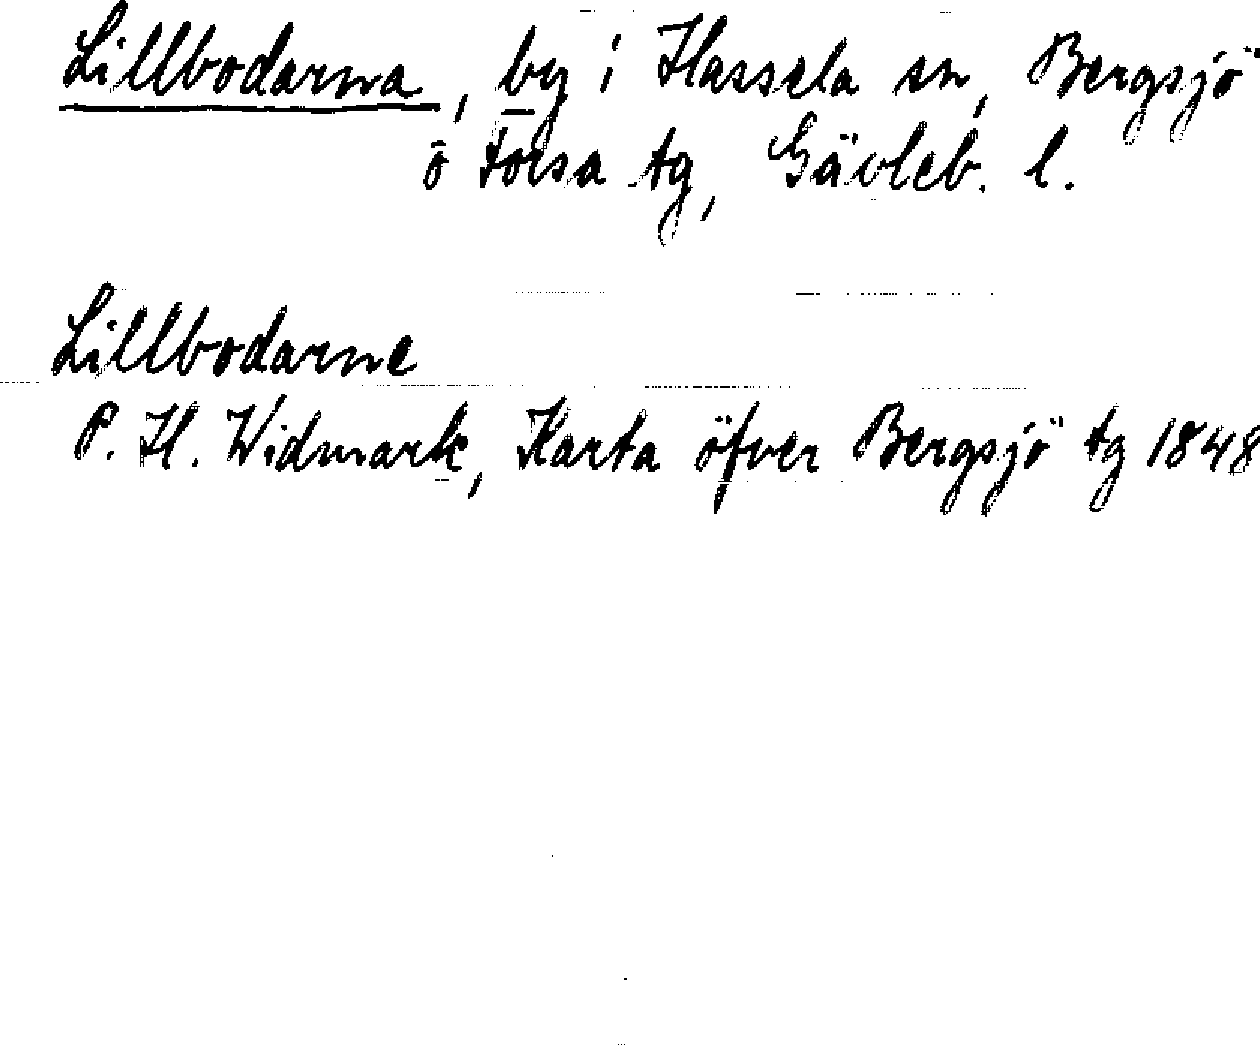 Lillbodarna, by i Hassela sn, Bergsjö
o Forsa tg, Gävleb. l.
Lillbodarne
P. H. Widmark, Karta öfver Bergsjö tg 1848